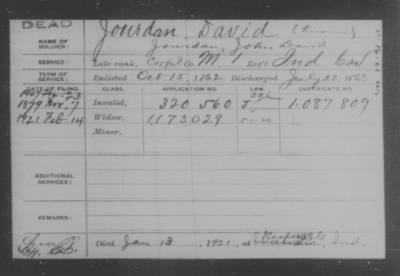 DEAD
NAME OF SOLDIER: Jourdan, David
Jourdan, John David
SERVICE: Late rank, Corpl Co. M, 1 Reg't Ind Cav
TERM OF SERVICE: Enlisted Oct 15, 1862 Discharged July 22, 1865
DATE OF FILING. CLASS. APPLICATION NO. LAW. CERTIFICATE NO.
1879 Nov. 7 Invalid, 320,560 1.087 809
1921 Feb 14 Widow, 1,173,029
Minor,
ADDITIONAL SERVICES:
REMARKS:
Died Jan 13, 1921, at Ind.